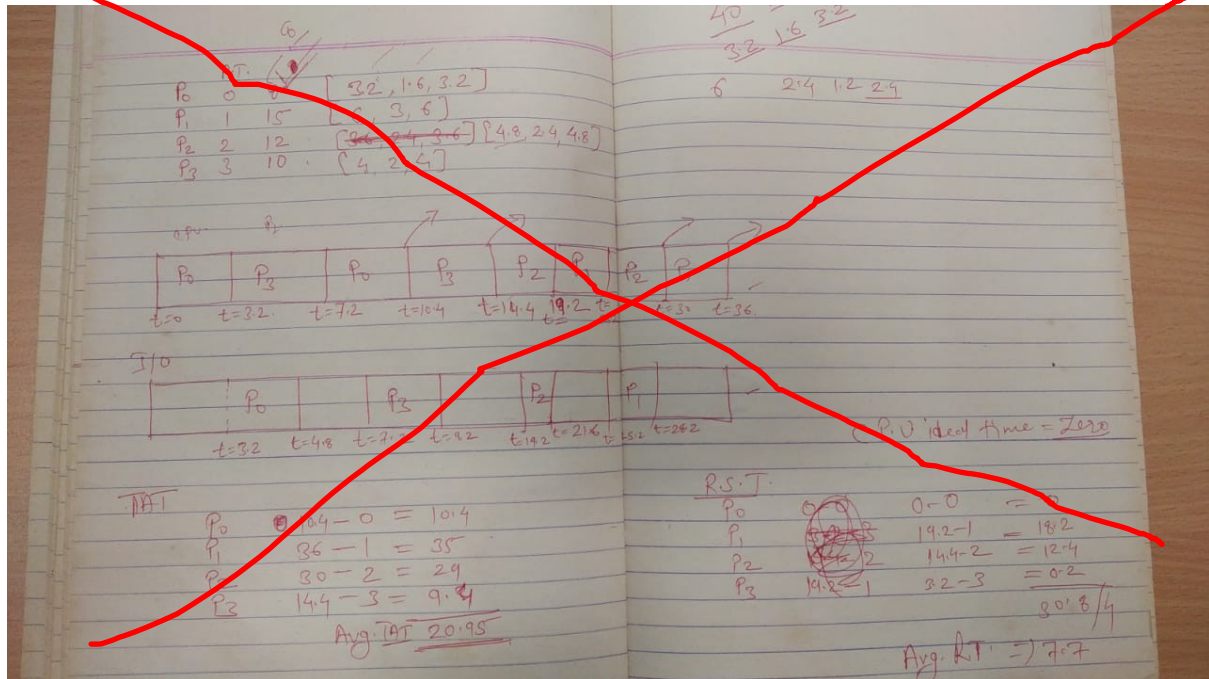 40
3.2 1.6 3.2
A.T.
P₀ 0 [3.2, 1.6, 3.2]
6 2.4 1.2 2.4
P₁ 1 15 [6, 3, 6]
P₂ 2 12 [4.8, 2.4, 4.8]
P₃ 3 10 [4, 2, 4]
P₀ P₃ P₀ P₃ P₂ P₁ P₂ P
t=0 t=3.2 t=7.2 t=10.4 t=14.4 19.2 t=30 t=36
I/O
P₀ P₃ P₂ P₁
t=3.2 t=4.8 t=7.2 t=9.2 t=19.2 t=21.6 t=28.2
C.P.U ideal time = Zero
TAT
P₀ 10.4 - 0 = 10.4
P₁ 36 - 1 = 35
P₂ 30 - 2 = 29
P₃ 14.4 - 3 = 9.4
Avg. TAT 20.95
R.S.T.
P₀ 0-0 =
P₁ 19.2-1 = 18.2
P₂ 14.4-2 = 12.4
P₃ 3.2-3 = 0.2
30.8/4
Avg. RT. => 7.7